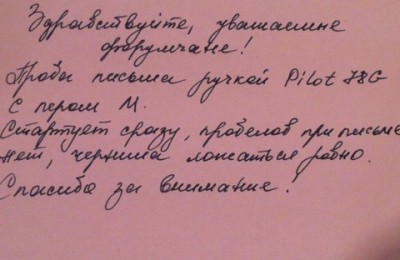 Здравствуйте, уважаемые
форумчане!
Проба письма ручкой Pilot 78G
с пером М.
Стартует сразу, пробелов при письме
нет, чернила ложаться ровно.
Спасибо за внимание!